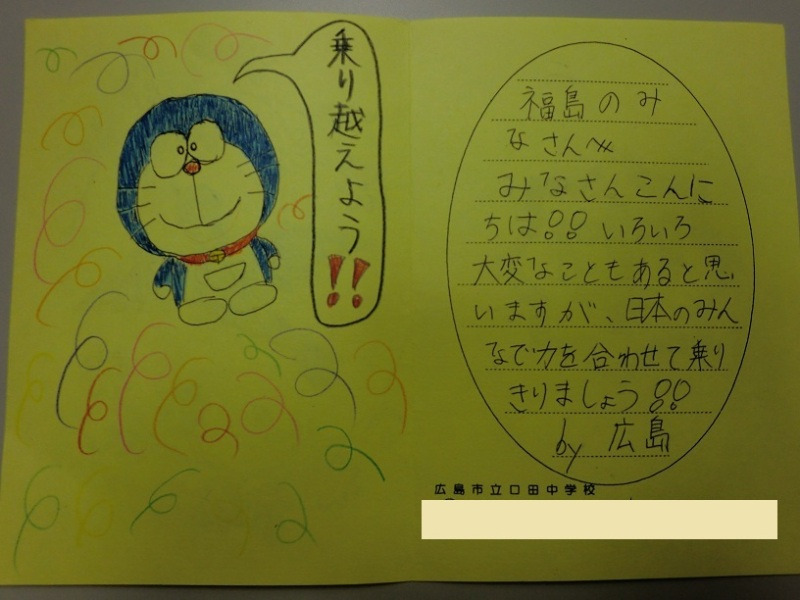 乗り越えよう!!
福島のみ
なさんへ
みなさんこんに
ちは!! いろいろ
大変なこともあると思
いますが、日本のみん
なで力を合わせて乗り
きりましょう!!
by 広島
広島市立口田中学校